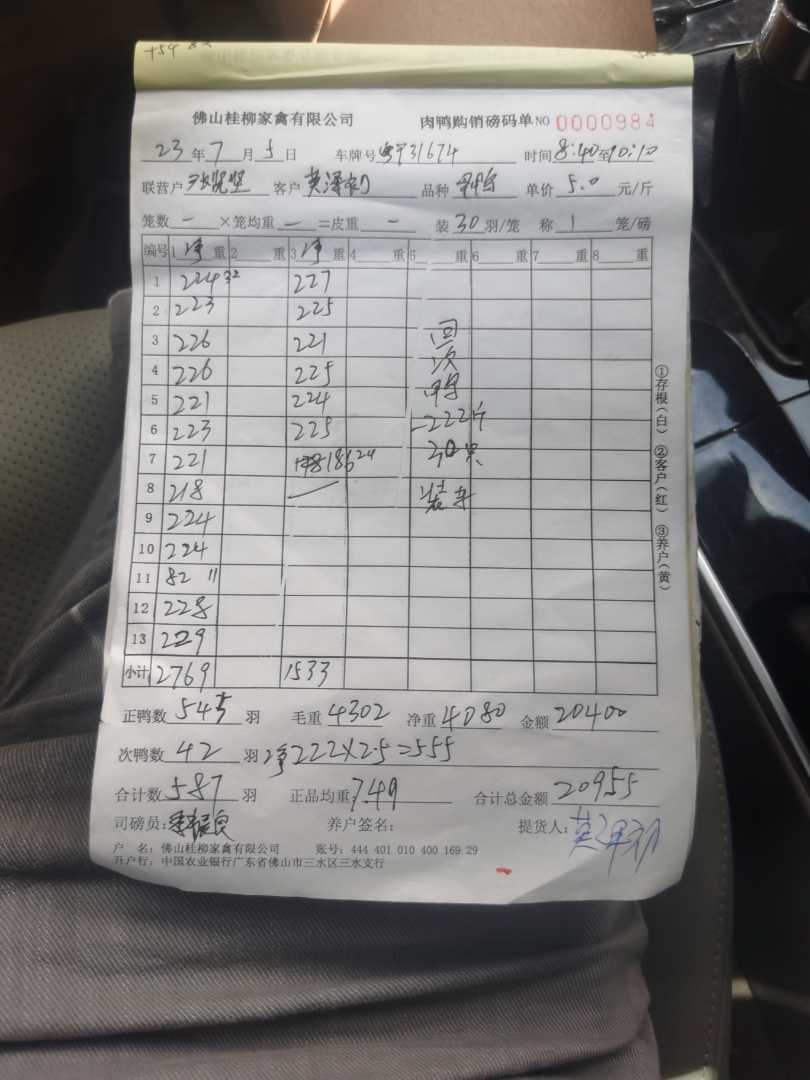 佛山桂柳家禽有限公司 肉鸭购销磅码单 NO 0000984
23 年 7 月 5 日 车牌号 31674 时间 8:40至10:10
联营户 客户 品种 单价 5.0 元/斤
笼数 一 ×笼均重 一 =皮重 一 装 30 羽/笼 称 1 笼/磅
编号 1 净 重 2 重 3 净 重 4 重 5 重 6 重 7 重 8 重
1 224 32 227
2 223 225
3 226 221 回
4 226 225 次
5 221 224 鸭
6 223 225 -222斤
7 221 186 24 30只
8 218 装车
9 224
10 224
11 82 11
12 228
13 229
小计 2769 1533
正鸭数 545 羽 毛重 4302 净重 4080 金额 20400
次鸭数 42 羽 净222×2.5=555
合计数 587 羽 正品均重 7.49 合计总金额 20955
司磅员: 养户签名: 提货人:
户 名: 佛山桂柳家禽有限公司 账号: 444 401 010 400 169 29
开户行: 中国农业银行广东省佛山市三水区三水支行
①存根(白) ②客户(红) ③养户(黄)